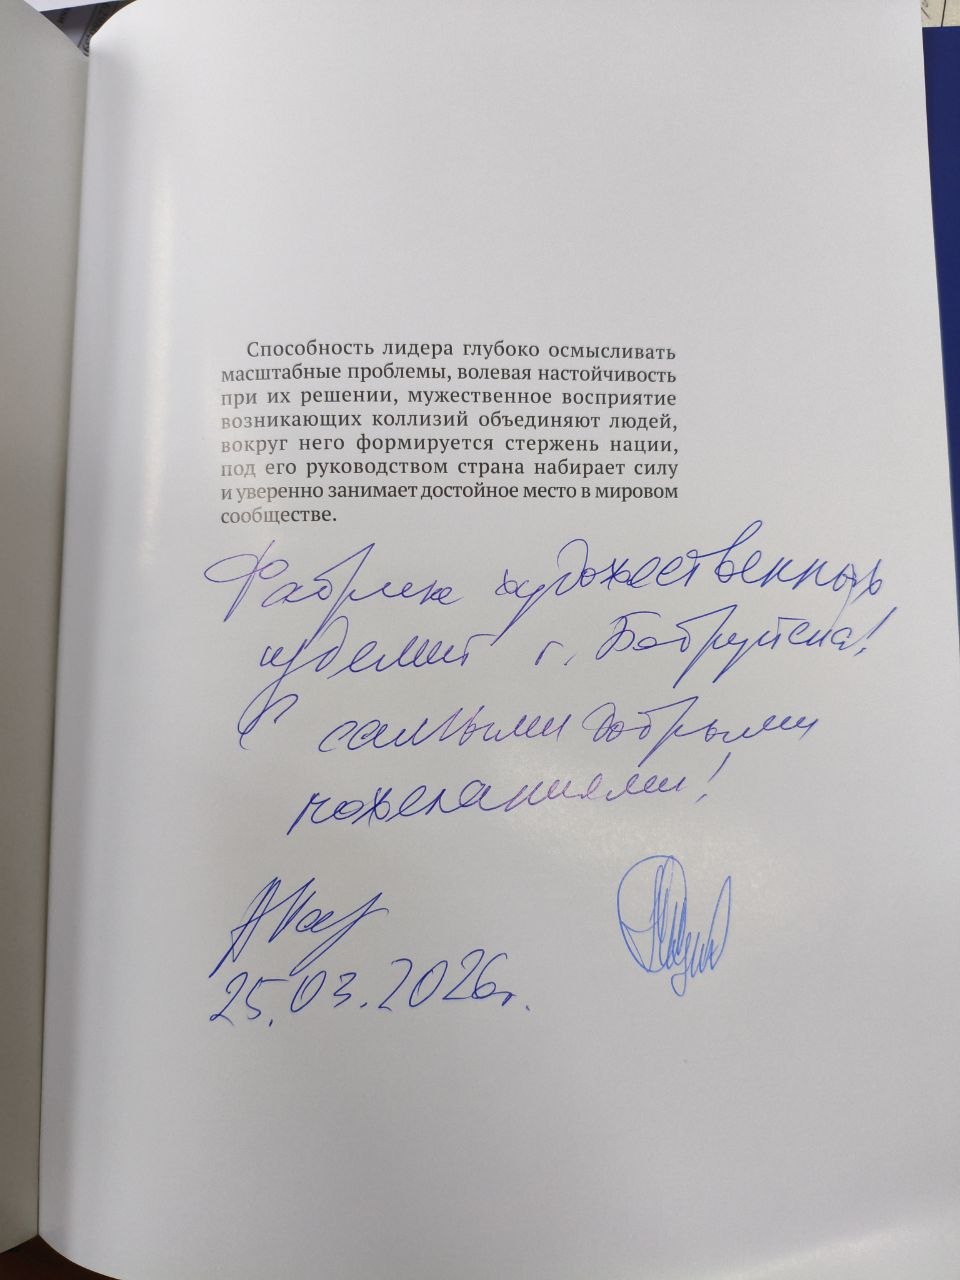 Способность лидера глубоко осмысливать
масштабные проблемы, волевая настойчивость
при их решении, мужественное восприятие
возникающих коллизий объединяют людей,
вокруг него формируется стержень нации,
под его руководством страна набирает силу
и уверенно занимает достойное место в мировом
сообществе.
Фабрике художественных
изделий г. Бобруйска!
С самыми добрыми
пожеланиями!
25.03.2026г.